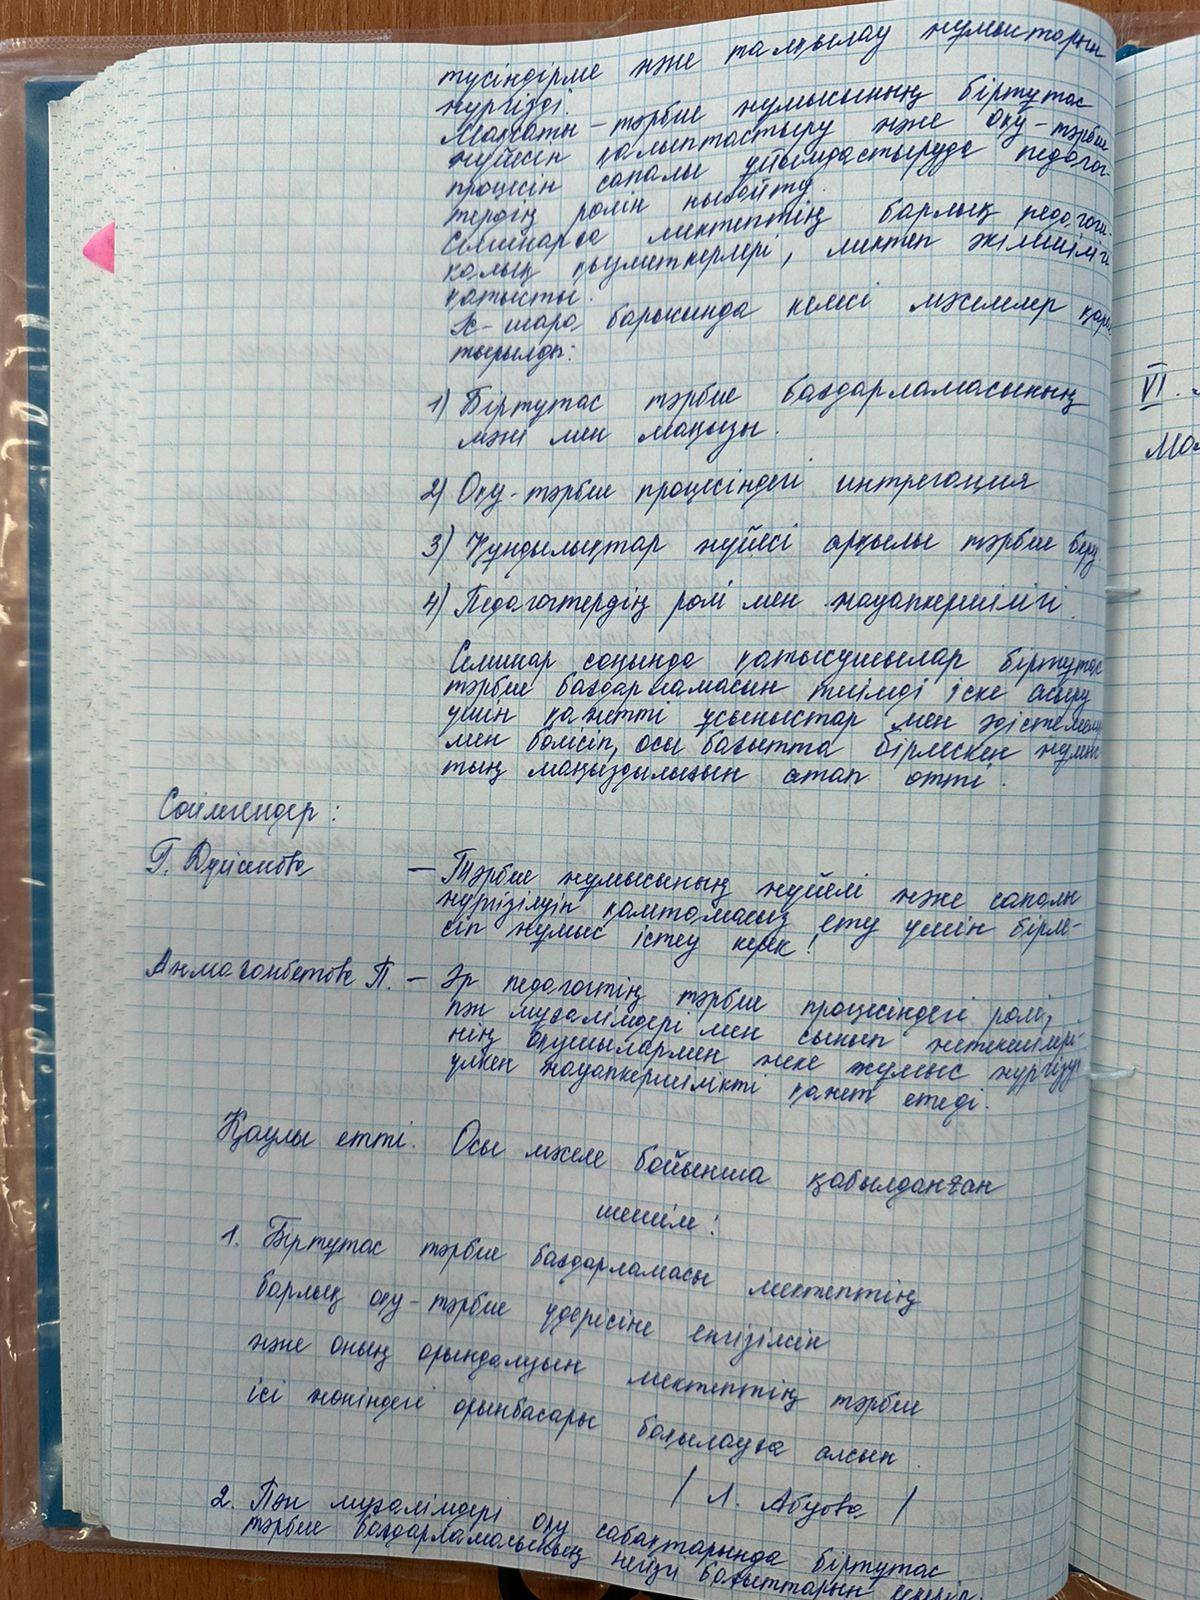 түсіндірме және талқылау жұмыстарын
жүргізді.
Мақсаты – тәрбие жұмысының біртұтас
жүйесін қалыптастыру және оқу-тәрбие
процесін сапалы ұйымдастыруда педагог-
тердің ролін нығайту.
Семинарға мектептің барлық педагоги-
калық қызметкерлері, мектеп әкімшілігі
қатысты.
Іс-шара барысында келесі мәселелер қарас-
тырылды:
1) Біртұтас тәрбие бағдарламасының
мәні мен маңызы.
2) Оқу-тәрбие процесіндегі интеграция
3) Құндылықтар жүйесі арқылы тәрбие беру
4) Педагогтердің ролі мен жауапкершілігі.
Семинар соңында қатысушылар біртұтас
тәрбие бағдарламасын тиімді іске асыру
үшін қажетті ұсыныстар мен әдістеме
мен бөлісіп, осы бағытта бірлескен жұмыс
тың маңыздылығын атап өтті.
Сөйлегендер:
Г. Дүйсенова – Тәрбие жұмысының жүйелі және сапалы
жүргізілуін қамтамасыз ету үшін бірле-
сіп жұмыс істеу керек!
Алмағанбетова П. – Әр педагогтің тәрбие процесіндегі ролі,
пән мұғалімдері мен сынып жетекшілері-
нің оқушылармен жеке жұмыс жүргізуі
үлкен жауапкершілікті қажет етеді.
Қаулы етті. Осы мәселе бойынша қабылданған
шешім:
1. Біртұтас тәрбие бағдарламасы мектептің
барлық оқу-тәрбие үдерісіне енгізілсін
және оның орындалуын мектептің тәрбие
ісі жөніндегі орынбасары бақылауға алсын.
/ Л. Абуова /
2. Пән мұғалімдері оқу сабақтарында біртұтас
тәрбие бағдарламасының негізі бағыттарын
VI.